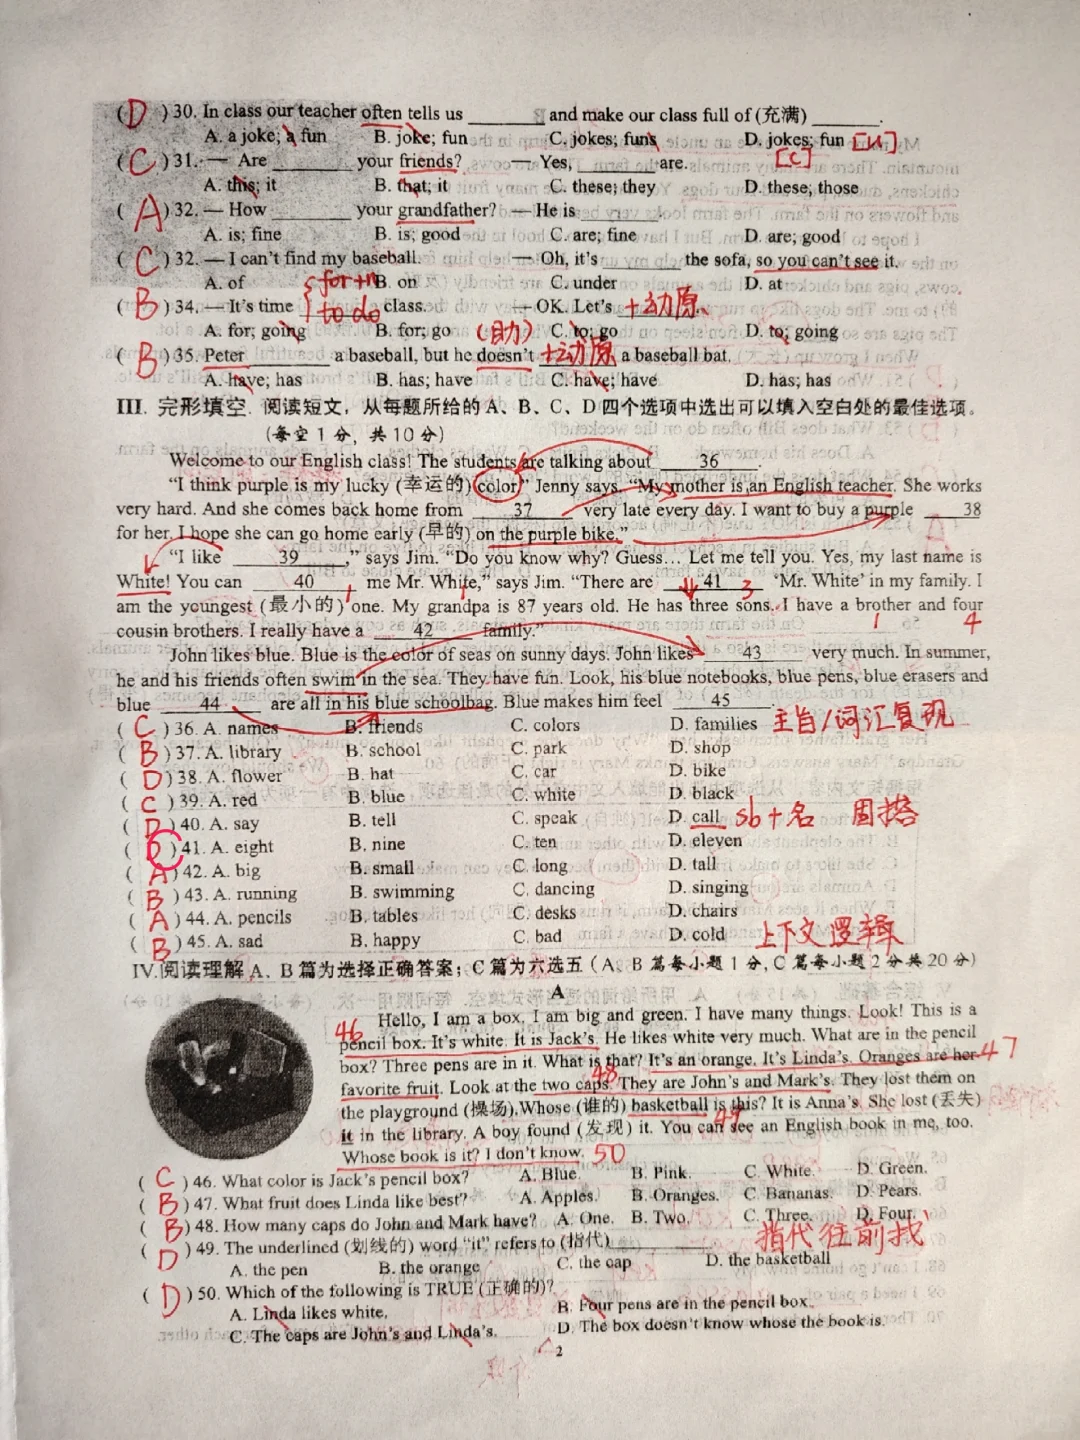 ( D ) 30. In class our teacher often tells us ________ and make our class full of (充满) ________.
A. a joke; a fun B. joke; fun C. jokes; funs D. jokes; fun [u]
[c]
( C ) 31. — Are ________ your friends? — Yes, ________ are.
A. this; it B. that; it C. these; they D. these; those
( A ) 32. — How ________ your grandfather? — He is ________.
A. is; fine B. is; good C. are; fine D. are; good
( C ) 32. — I can't find my baseball. — Oh, it's ________ the sofa, so you can't see it.
A. of B. on C. under D. at
for+n
( B ) 34. — It's time ________ class. — OK. Let's ________. +动原
to do
A. for; going B. for; go (助) C. to; go D. to; going
( B ) 35. Peter ________ a baseball, but he doesn't +动原 a baseball bat.
A. have; has B. has; have C. have; have D. has; has
III. 完形填空. 阅读短文，从每题所给的 A、B、C、D 四个选项中选出可以填入空白处的最佳选项。
(每空 1 分, 共 10 分)
Welcome to our English class! The students are talking about 36 .
"I think purple is my lucky (幸运的) color," Jenny says. "My mother is an English teacher. She works
very hard. And she comes back home from 37 very late every day. I want to buy a purple 38
for her. I hope she can go home early (早的) on the purple bike."
"I like 39 ," says Jim. "Do you know why? Guess… Let me tell you. Yes, my last name is
White! You can 40 me Mr. White," says Jim. "There are 41 'Mr. White' in my family. I
1 1 3
am the youngest (最小的) one. My grandpa is 87 years old. He has three sons. I have a brother and four
1 4
cousin brothers. I really have a 42 family."
John likes blue. Blue is the color of seas on sunny days. John likes 43 very much. In summer,
he and his friends often swim in the sea. They have fun. Look, his blue notebooks, blue pens, blue erasers and
blue 44 are all in his blue schoolbag. Blue makes him feel 45 .
( C ) 36. A. names B. friends C. colors D. families 主旨/词汇复现
( B ) 37. A. library B. school C. park D. shop
( D ) 38. A. flower B. hat C. car D. bike
( C ) 39. A. red B. blue C. white D. black
( D ) 40. A. say B. tell C. speak D. call sb+名 固搭
( D ) 41. A. eight B. nine C. ten D. eleven
( A ) 42. A. big B. small C. long D. tall
( B ) 43. A. running B. swimming C. dancing D. singing
( A ) 44. A. pencils B. tables C. desks D. chairs
( B ) 45. A. sad B. happy C. bad D. cold 上下文逻辑
IV.阅读理解 A、B篇为选择正确答案；C篇为六选五 (A、B篇每小题 1 分, C篇每小题 2 分共 20 分)
A
Hello, I am a box. I am big and green. I have many things. Look! This is a
46
pencil box. It's white. It is Jack's. He likes white very much. What are in the pencil
box? Three pens are in it. What is that? It's an orange. It's Linda's. Oranges are her 47
favorite fruit. Look at the two caps. They are John's and Mark's. They lost them on
48
the playground (操场). Whose (谁的) basketball is this? It is Anna's. She lost (丢失)
49
it in the library. A boy found (发现) it. You can see an English book in me, too.
Whose book is it? I don't know. 50
( C ) 46. What color is Jack's pencil box? A. Blue. B. Pink. C. White. D. Green.
( B ) 47. What fruit does Linda like best? A. Apples. B. Oranges. C. Bananas. D. Pears.
( B ) 48. How many caps do John and Mark have? A. One. B. Two. C. Three. D. Four.
( D ) 49. The underlined (划线的) word "it" refers to (指代) ________. 指代往前找
A. the pen B. the orange C. the cap D. the basketball
( D ) 50. Which of the following is TRUE (正确的)?
A. Linda likes white. B. Four pens are in the pencil box.
C. The caps are John's and Linda's. D. The box doesn't know whose the book is.
2